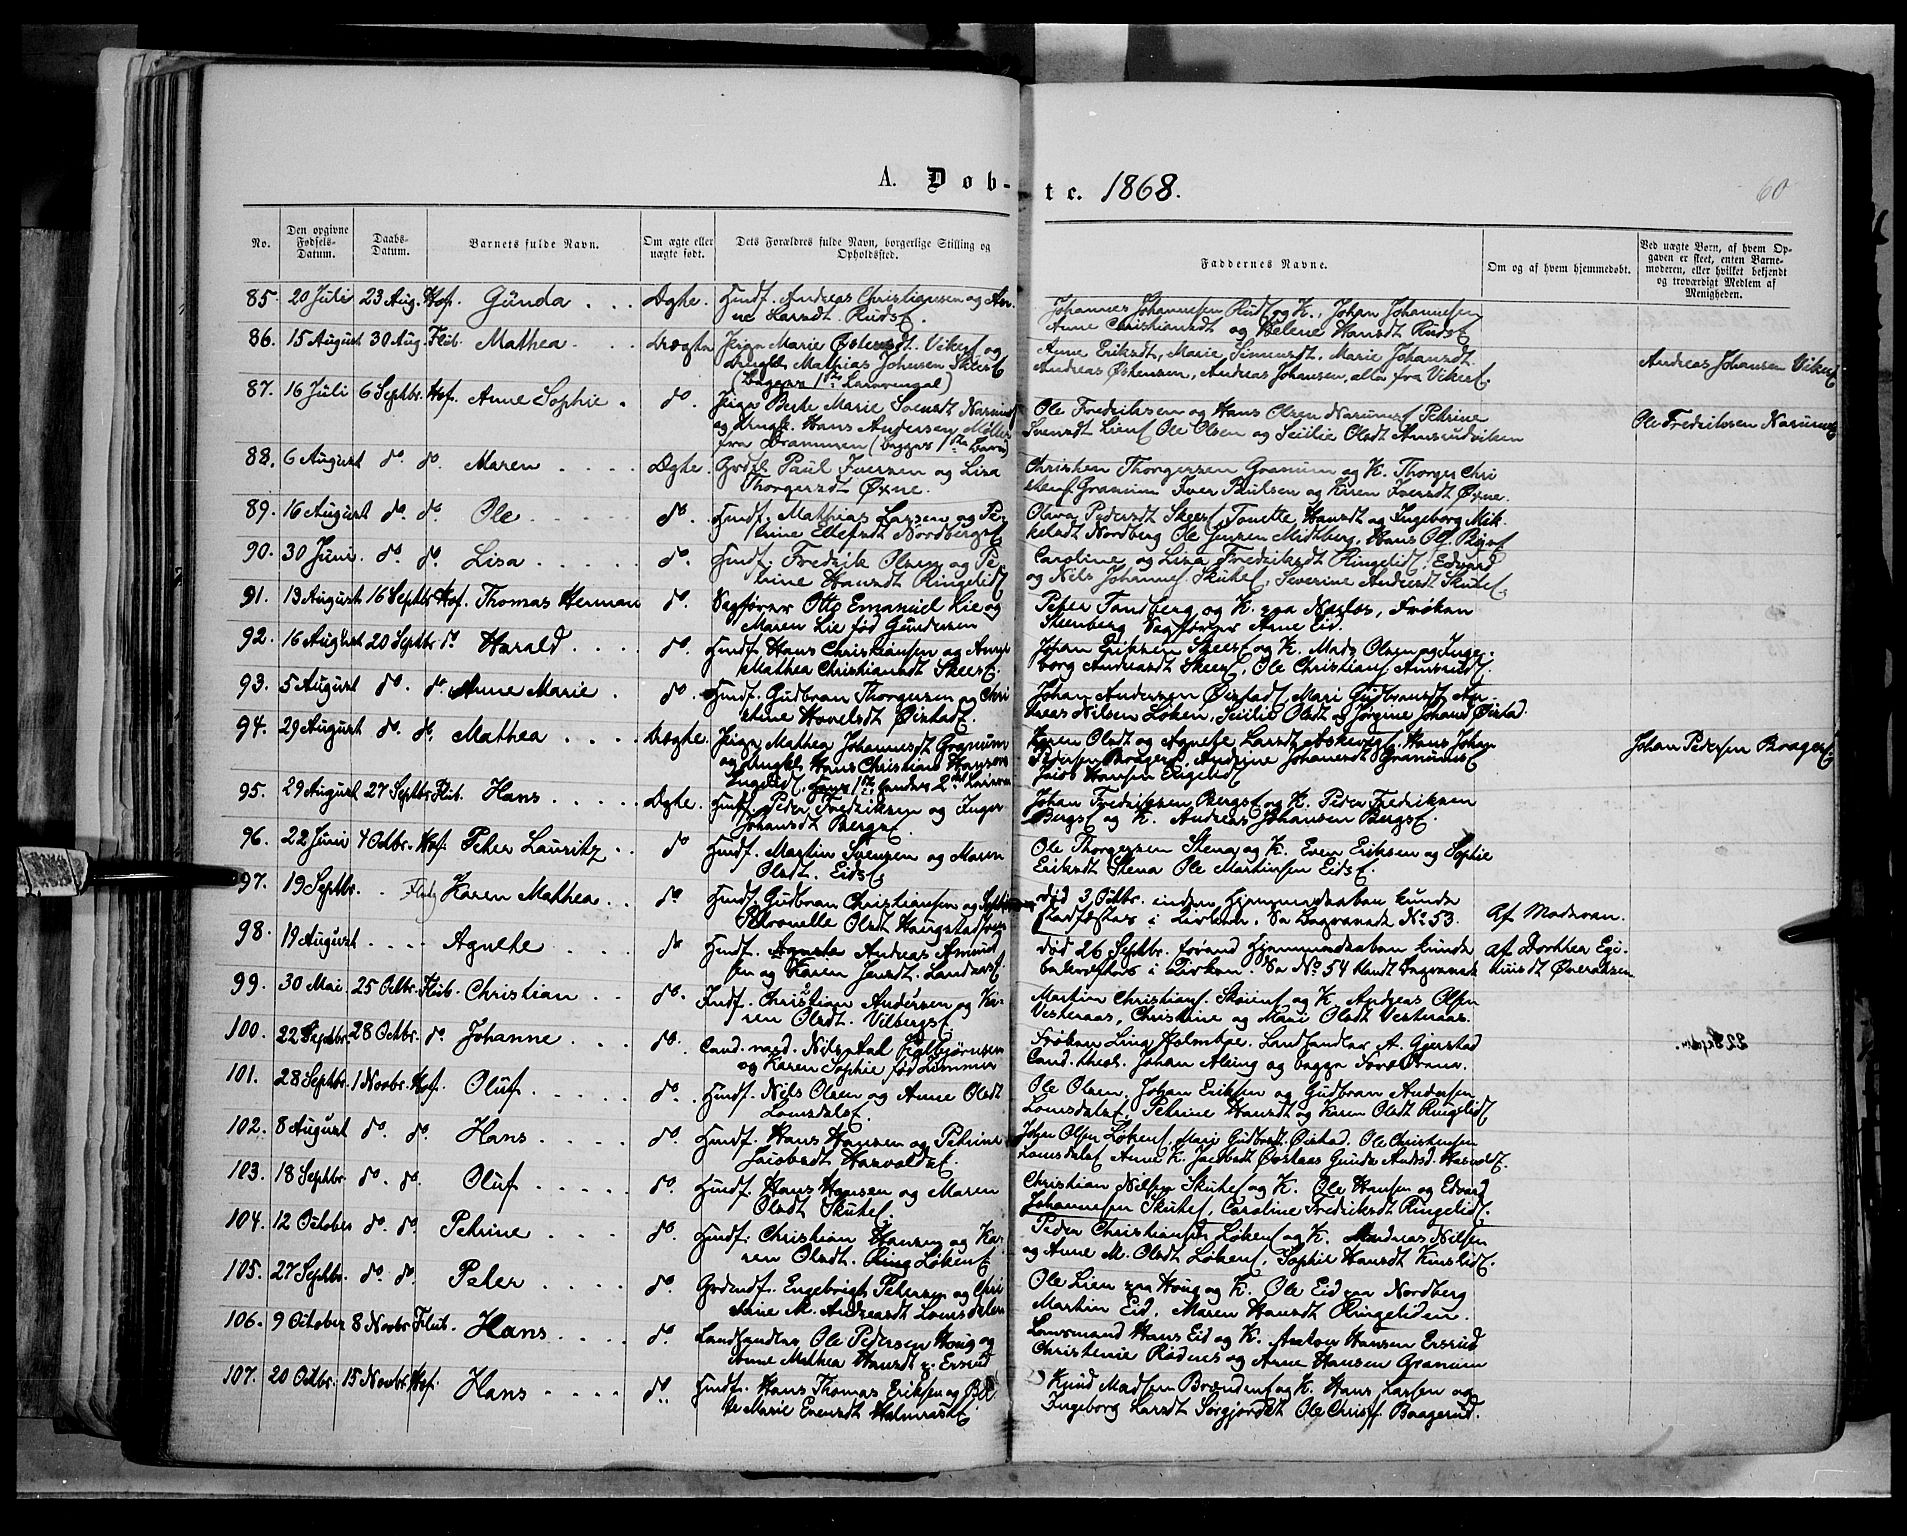 A. Døb-te. 1868.
60
No.
Den opgivne Fødsels-Datum.
Daabs-Datum.
Barnets fulde Navn.
Om ægte eller uægte født.
Dets Forældres fulde Navn, borgerlige Stilling og Opholdssted.
Faddernes Navne.
Om og af hvem hjemmedøbt.
Ved uægte Børn, af hvem Opgaven er skeet, enten Barnemoderen, eller hvilket bekjendt og troværdigt Medlem af Menigheden.
85. 20 Juli 23 Aug. Hof. Gunda Ægte. Huusf. Andreas Christiansen og An-
ne Larsdt. Rudse.
Johannes Johannesen Rudse og K., Johan Johannesen
Anne Christiansdt og Helene Hansdt Rudse
86. 15 August 30 Aug. Flub. Mathea Uægte Pige Marie Østensdt. Vikers og
Ungk. Mathias Johnsen Skeers
(Begges 1ste Leiermaal)
Anne Eriksdt, Marie Simensdt. Marie Johansdt.
Andreas Østensen, Andreas Johansen, alle fra Viker.
Andreas Johansen Viker
87. 16 Juli 6 Septbr. Hof. Anne Sophie d⁰. Pige Berte Marie Svensdt Narum
og Ungk. Hans Andersen Møller
fra Drammen (begges 1ste Barn)
Ole Fredriksen og Hans Olsen Narum Petrine
Svensdt Lien Ole Olsen og Sicilie Olsdt Amsrudviken
Ole Fredriksen Narum
88. 6 August d⁰. d⁰. Maren Ægte. Grdf. Paul Iversen og Lisa
Thorgersdt Øxne.
Christen Thorgersen Granum og K. Thorger Chri
stens. Granum Iver Paulsen og Karen Iversdt Øxne.
89. 16 August d⁰. d⁰. Ole d⁰. Huusf. Mathias Larsen og Pe-
trine Ellefsdt Nordberg
Oliva Pedersdt Skeer, Tonette Hansdt og Ingeborg Mik
kelsdt Nordberg Ole Jensen Midtberg, Hans Ol.
90. 30 Juni d⁰. d⁰. Lisa d⁰. Huusf. Fredrik Olsen og Pe-
trine Hansdt Ringelid
Caroline og Lisa Fredriksdt Ringelid, Edvard
og Nils Johannes. Skute, Severine Andersdt Skute
91. 13 August 16 Septbr Hof. Thomas Herman d⁰. Sagfører Otto Emanuel Lie og
Maren Lie fød Gundersen
Peter Tandberg og K. paa Næs, Frøken
Steenberg Sagfører Arne Eid.
92. 16 August 20 Septbr d⁰ Harald d⁰. Huusf. Hans Christiansen og Anne
Mathea Christiansdt Skeer
Johan Eriksen Skeer og K. Mads Olsen og Inge-
borg Andreasdt Skeer, Ole Christians. Amsrud.
93. 5 August d⁰. d⁰ Anne Marie d⁰. Huusf. Gudbran Thorgersen og Chri
stine Hovelsdt Øistad
Johan Andersen Øistad Mari Gudbransdt An-
dreas Nilsen Løken, Sicilie Olsdt og Jørgine Johansd. Øistad.
94. 29 August d⁰. d⁰. Mathea Uægte. Pige Mathea Johannesdt Granum
og Ungkl. Hans Christian Hansen
Ingelid, hans 1ste hendes 2det Leierm
Karen Olsdt og Agnethe Larsdt Hans Johan
Pedersen Braager, Andrine Johansdt Granum
Jacob Hansen Engelid
Johan Pedersen Braager
95. 29 August 27 Septbr Flub. Hans Ægte. Huusf. Peder Fredriksen og Inger
Johansdt Bergs.
Johan Fredriksen Bergs og K. Peder Fredriksen
Bergs og K. Andreas Johansen Bergs.
96. 22 Juni 4 Octbr. Hof. Peter Lauritz d⁰ Huusf. Martin Svensen og Maren
Olsdt. Eids
Ole Thorgersen Stena og K. Even Eriksen og Sophie
Eriksdt Stena Ole Martinsen Eids.
97. 19 Septbr. Flub Karen Mathea d⁰ Huusf. Gudbran Christiansen og
Petronelle Olsdt Haugstad
død 3 Octbr. inden Hjemmedaaben kunde
stadfæstes i Kirken. Se Begravede № 53.
Af Moderen.
98. 19 August Agnethe d⁰ Huusf. Andreas Amund
sen og Karen Jensdt. Landaas
død 26 Septbr. førend Hjemmedaaben kunde
bekræftes i Kirken. Se № 54 blandt Begravede
Af Dorthea Egi-
Øveraasen
99. 30 Mai 25 Octbr. Flub. Christian d⁰. Indf. Christian Andersen og Ka-
ren Olsdt. Vilberg
Martin Christians. Skøien og K. Andreas Olsen
Vesteraas, Christine og Mari Olsdt Vesteraas.
100. 22 Septbr. 28 Octbr. d⁰. Johanne d⁰. Cand. med. Nils Esbjørnsen
og Karen Sophie fød Lømmen
Frøken Holmboe. Landhandler A. Gjerstad
Cand. theol. Johan Aling og begge Forældrene.
22 Septbr.
101. 28 Septbr. 1 Novbr. Hof. Oluf d⁰. Huusf. Nils Olsen og Anne Olsdt
Lomsdals
Ole Olsen, Johan Eriksen og Gudbran Andersen
Lomsdals, Petrine Hansdt og Karen Olsdt Ringelid
102. 8 August d⁰. d⁰. Hans d⁰. Huusf. Hans Hansen og Petrine
Jacobsdt Harvolds.
Johan Olsen Løken, Mari Gudbrsd. Øistad. Ole Christensen
Lomsdals Anne K. Jacobsdt Gunda Andersd. Harvold
103. 18 Septbr. d⁰. d⁰. Oluf d⁰. Huusf. Hans Hansen og Maren
Olsdt Skute.
Christian Nilsen Skute og K. Ole Hansen og Edvard
Johannesen Skute, Caroline Fredriksdt Ringelid.
104. 12 October d⁰. d⁰. Petrine d⁰. Huusf. Christian Hansen og Ka-
ren Olsdt. Ring Løken
Peder Christiansen Løken og K. Andreas Nilsen
og Anne M. Olsdt Løken, Sophie Hansdt Kinslid.
105. 27 Septbr. d⁰. d⁰. Peter d⁰. Grdmdf. Engebrigt Petersen og Chri
stine M. Andreasdt Lomsdalen
Ole Lien paa Houg og K. Ole Eid paa Nordberg
Martin Eid. Maren Hansdt Ringeliden.
106. 9 October 8 Novbr Flub. Hans d⁰. Landhandler Ole Pedersen Houg og
Anne Mathea Hansdt f. Ersrud
Lensmand Hans Eid og K. Anton Hansen Ersrud
Christenie Rødnes og Anne Hansen Granum
107. 20 Octbr. 15 Novbr. Hof. Hans d⁰. Huusf. Hans Thomas Eriksen og Be
te Marie Evensdt Halmrast
Knud Madsen Brænden og K. Hans Larsen og
Ingeborg Larsdt Sørgjordet Ole Christ. Braagerud.